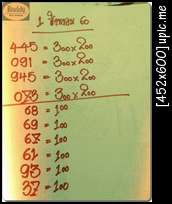 Buddy
1 ธันวาคม 60
445 = 300×200
091 = 300×200
945 = 300×200
073 = 300×200
68 = 100
69 = 100
67 = 100
61 = 100
93 = 100
37 = 100
[452x600] upic.me